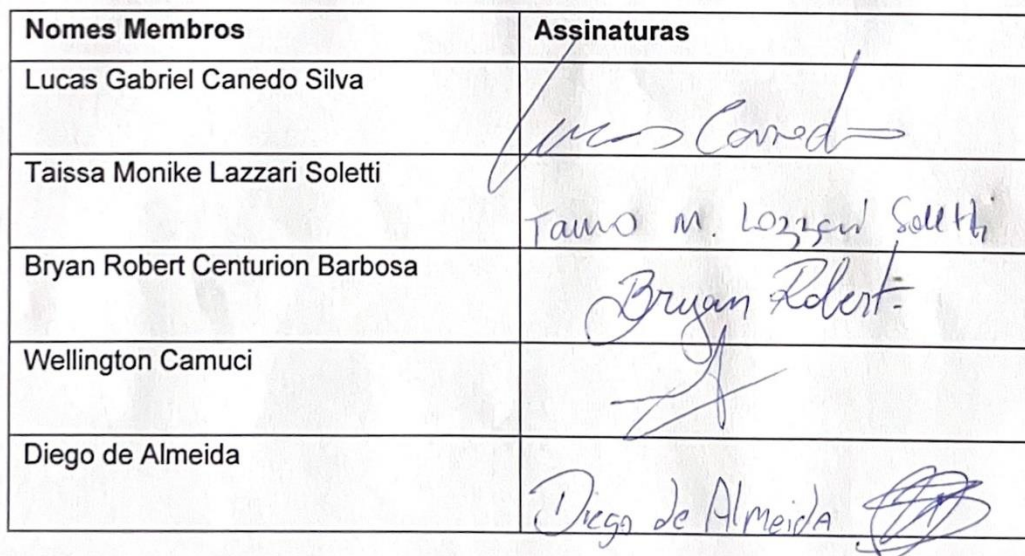 Nomes Membros Assinaturas
Lucas Gabriel Canedo Silva
Lucas Canedo
Taissa Monike Lazzari Soletti
Taissa M. Lazzari Soletti
Bryan Robert Centurion Barbosa
Bryan Robert
Wellington Camuci
Diego de Almeida
Diego de Almeida